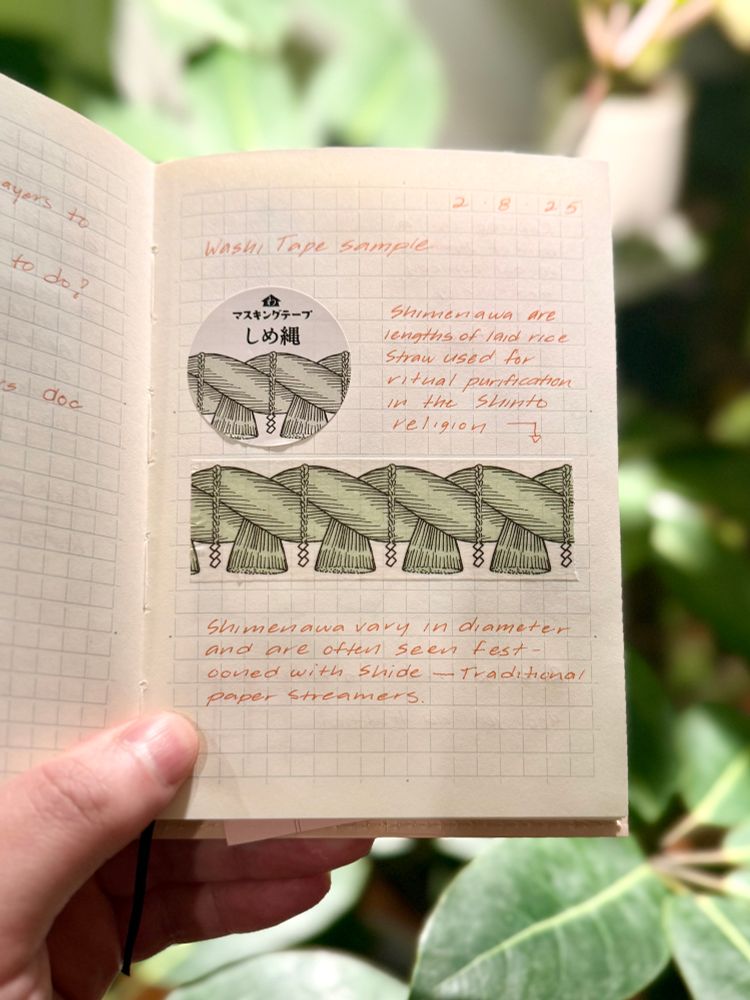 ayers to
to do?
rs doc
2 · 8 · 25
Washi Tape sample
マスキングテープ
しめ縄
Shimenawa are
lengths of laid rice
straw used for
ritual purification
in the Shinto
religion
Shimenawa vary in diameter
and are often seen fest-
ooned with Shide — Traditional
paper streamers.